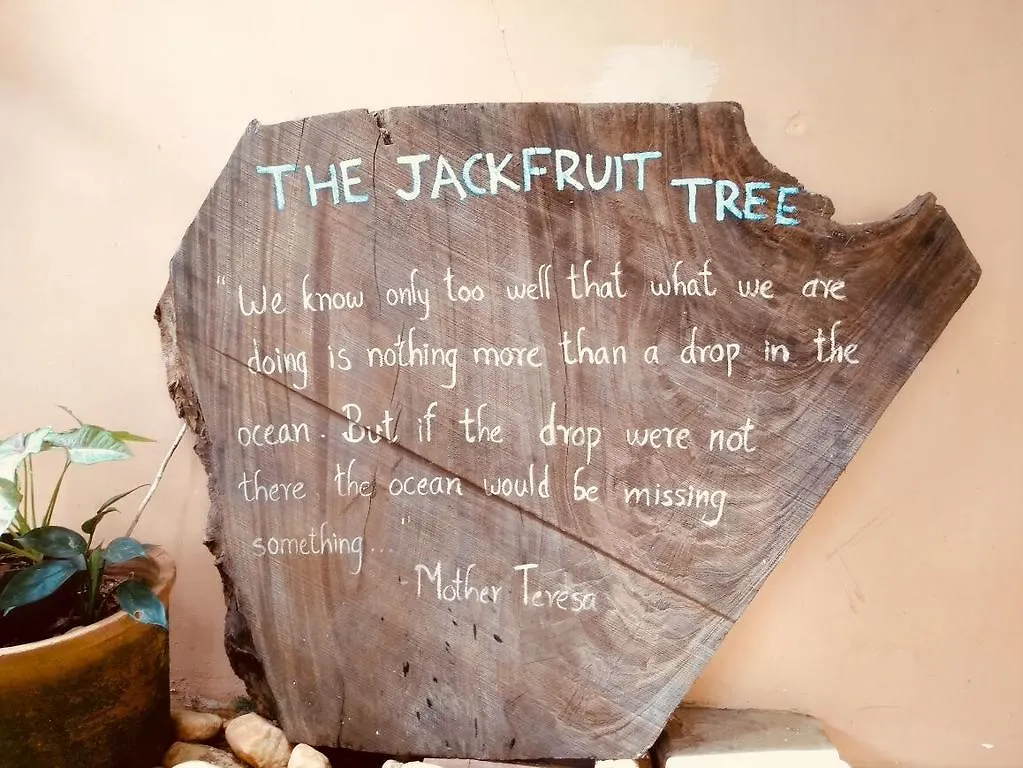 THE JACKFRUIT TREE
"We know only too well that what we are
doing is nothing more than a drop in the
ocean. But if the drop were not
there, the ocean would be missing
something..."
Mother Teresa